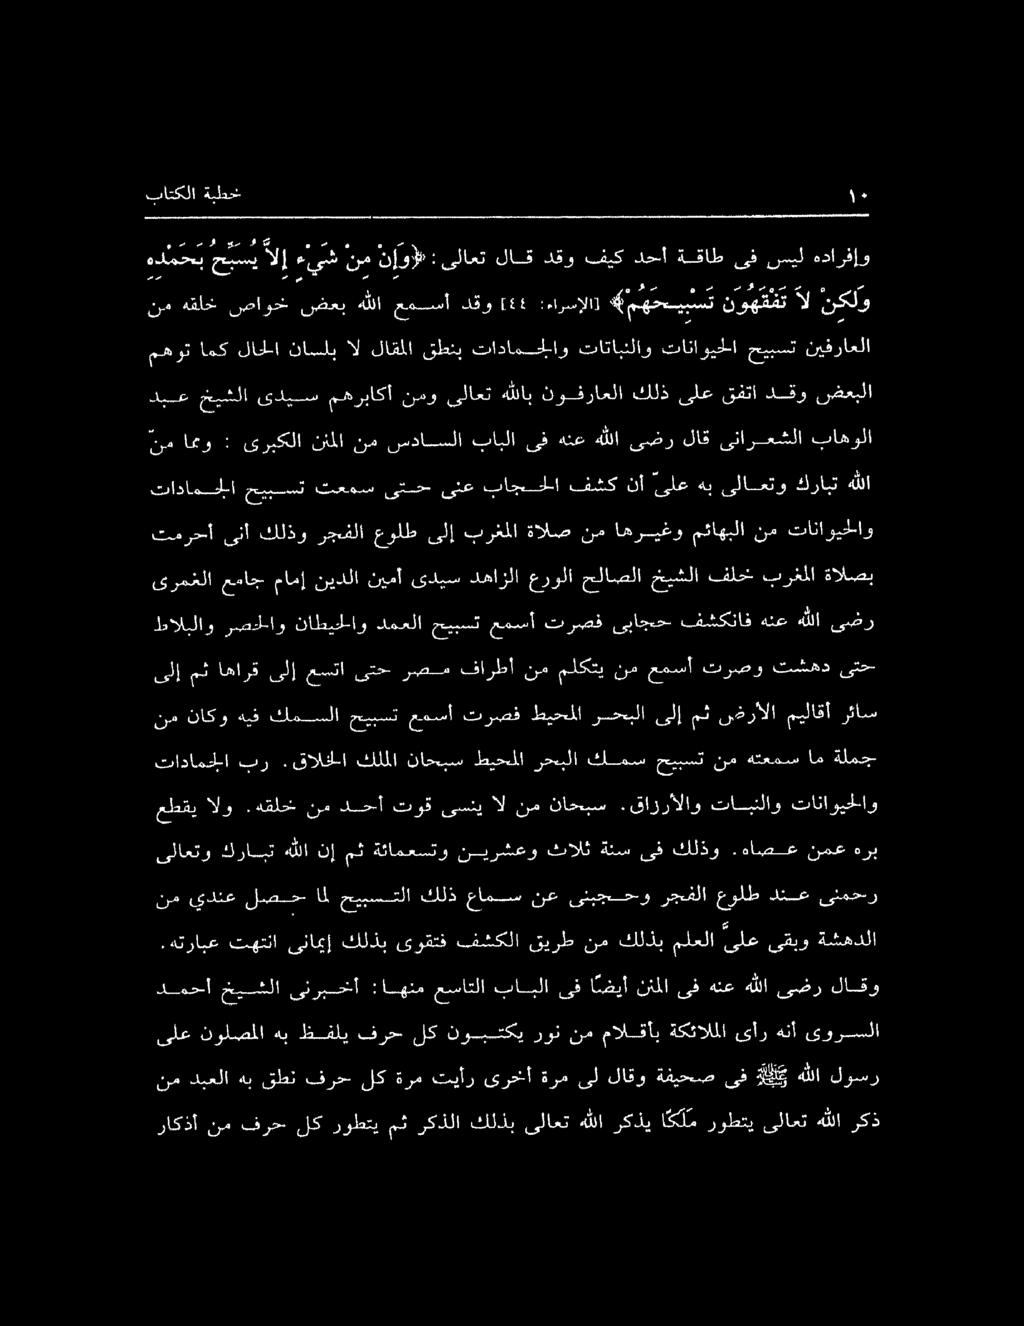 ١٠ خطبة الكتاب
وإفراده ليس فى طاقة أحد كيف وقد قال تعالى: ﴿وَإِنْ مِنْ شَيْءٍ إِلاَّ يُسَبِّحُ بَحَمْدِهِ
وَلَكِنْ لاَ تَفْقَهُونَ تَسْبِيحَهُمْ﴾ [الإسراء: ٤٤] وقد أسمع الله بعض خواص خلقه من
العارفين تسبيح الحيوانات والنباتات والجمادات بنطق المقال لا بلسان الحال كما توهم
البعض وقد اتفق على ذلك العارفون بالله تعالى ومن أكابرهم سيدى الشيخ عبد
الوهاب الشعرانى قال رضى الله عنه فى الباب السادس من المنن الكبرى : ومما منّ
الله تبارك وتعالى به علىّ أن كشف الحجاب عنى حتى سمعت تسبيح الجمادات
والحيوانات من البهائم وغيرها من صلاة المغرب إلى طلوع الفجر وذلك أنى أحرمت
بصلاة المغرب خلف الشيخ الصالح الورع الزاهد سيدى أمين الدين إمام جامع الغمرى
رضى الله عنه فانكشف حجابى فصرت أسمع تسبيح العمد والحيطان والحصر والبلاط
حتى دهشت وصرت أسمع من يتكلم من أطراف مصر حتى اتسع إلى قراها ثم إلى
سائر أقاليم الأرض ثم إلى البحر المحيط فصرت أسمع تسبيح السمك فيه وكان من
جملة ما سمعته من تسبيح سمك البحر المحيط سبحان الملك الخلاق. رب الجمادات
والحيوانات والنبات والأرزاق. سبحان من لا ينسى قوت أحد من خلقه. ولا يقطع
بره عمن عصاه. وذلك فى سنة ثلاث وعشرين وتسعمائة ثم إن الله تبارك وتعالى
رحمنى عند طلوع الفجر وحجبنى عن سماع ذلك التسبيح لما حصل عندي من
الدهشة وبقى علىَّ العلم بذلك من طريق الكشف فتقوى بذلك إيمانى انتهت عبارته.
وقال رضى الله عنه فى المنن أيضًا فى الباب التاسع منها: أخبرنى الشيخ أحمد
السروى أنه رأى الملائكة بأقلام من نور يكتبون كل حرف يلفظ به المصلون على
رسول الله ﷺ فى صحيفة وقال لى مرة أخرى رأيت مرة كل حرف نطق به العبد من
ذكر الله تعالى يتطور مَلَكًا يذكر الله تعالى بذلك الذكر ثم يتطور كل حرف من أذكار